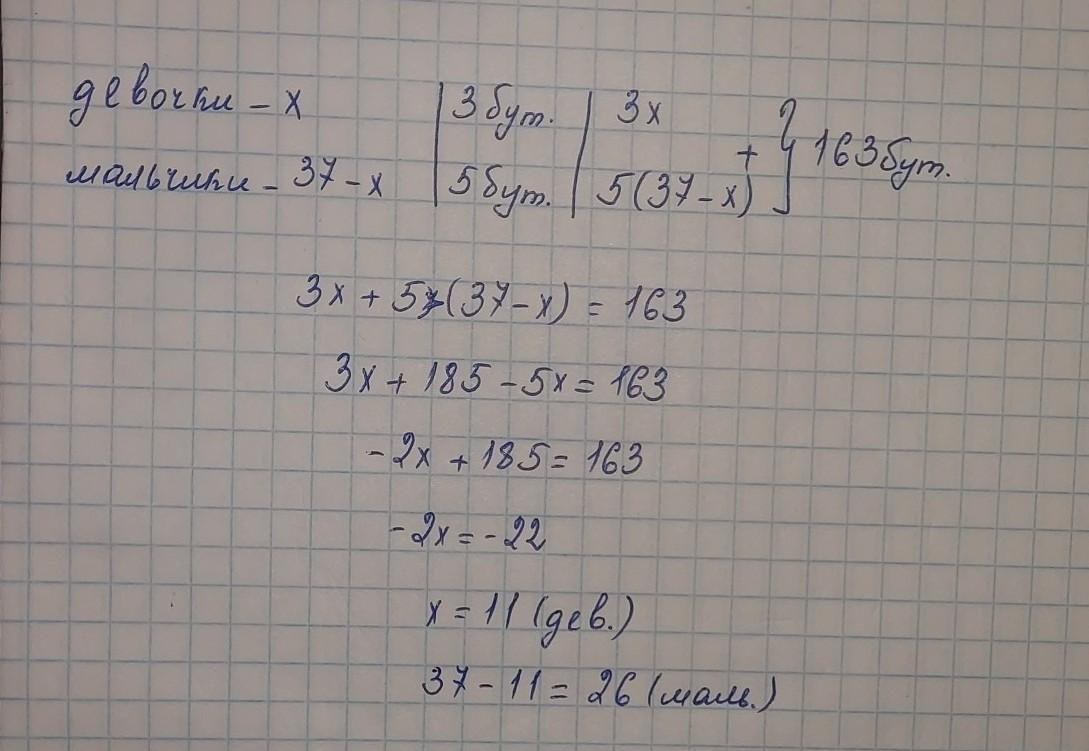 девочки - x | 3 бут. | 3x
мальчики - 37 - x | 5 бут. | 5(37 - x) + } 163 бут.
3x + 5(37 - x) = 163
3x + 185 - 5x = 163
-2x + 185 = 163
-2x = -22
x = 11 (дев.)
37 - 11 = 26 (маль.)